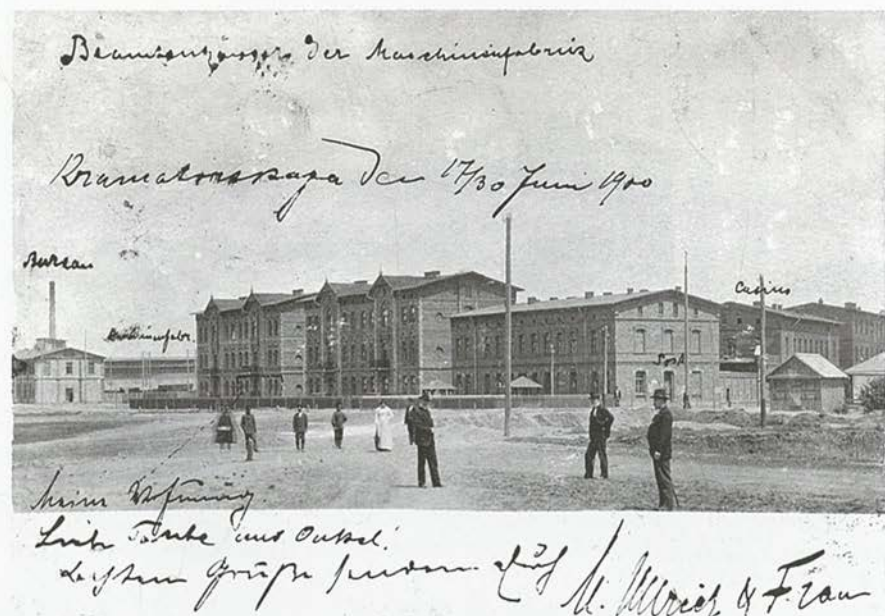 Beamtenhäuser der Maschinenfabrik
Kramatorskaja den 17/30 Juni 1900
Bureau
Maschinenfabr.
Casino
Meine Wohnung.
Liebe Tante und Onkel!
Grüße senden Euch
M. Ullrich & Frau